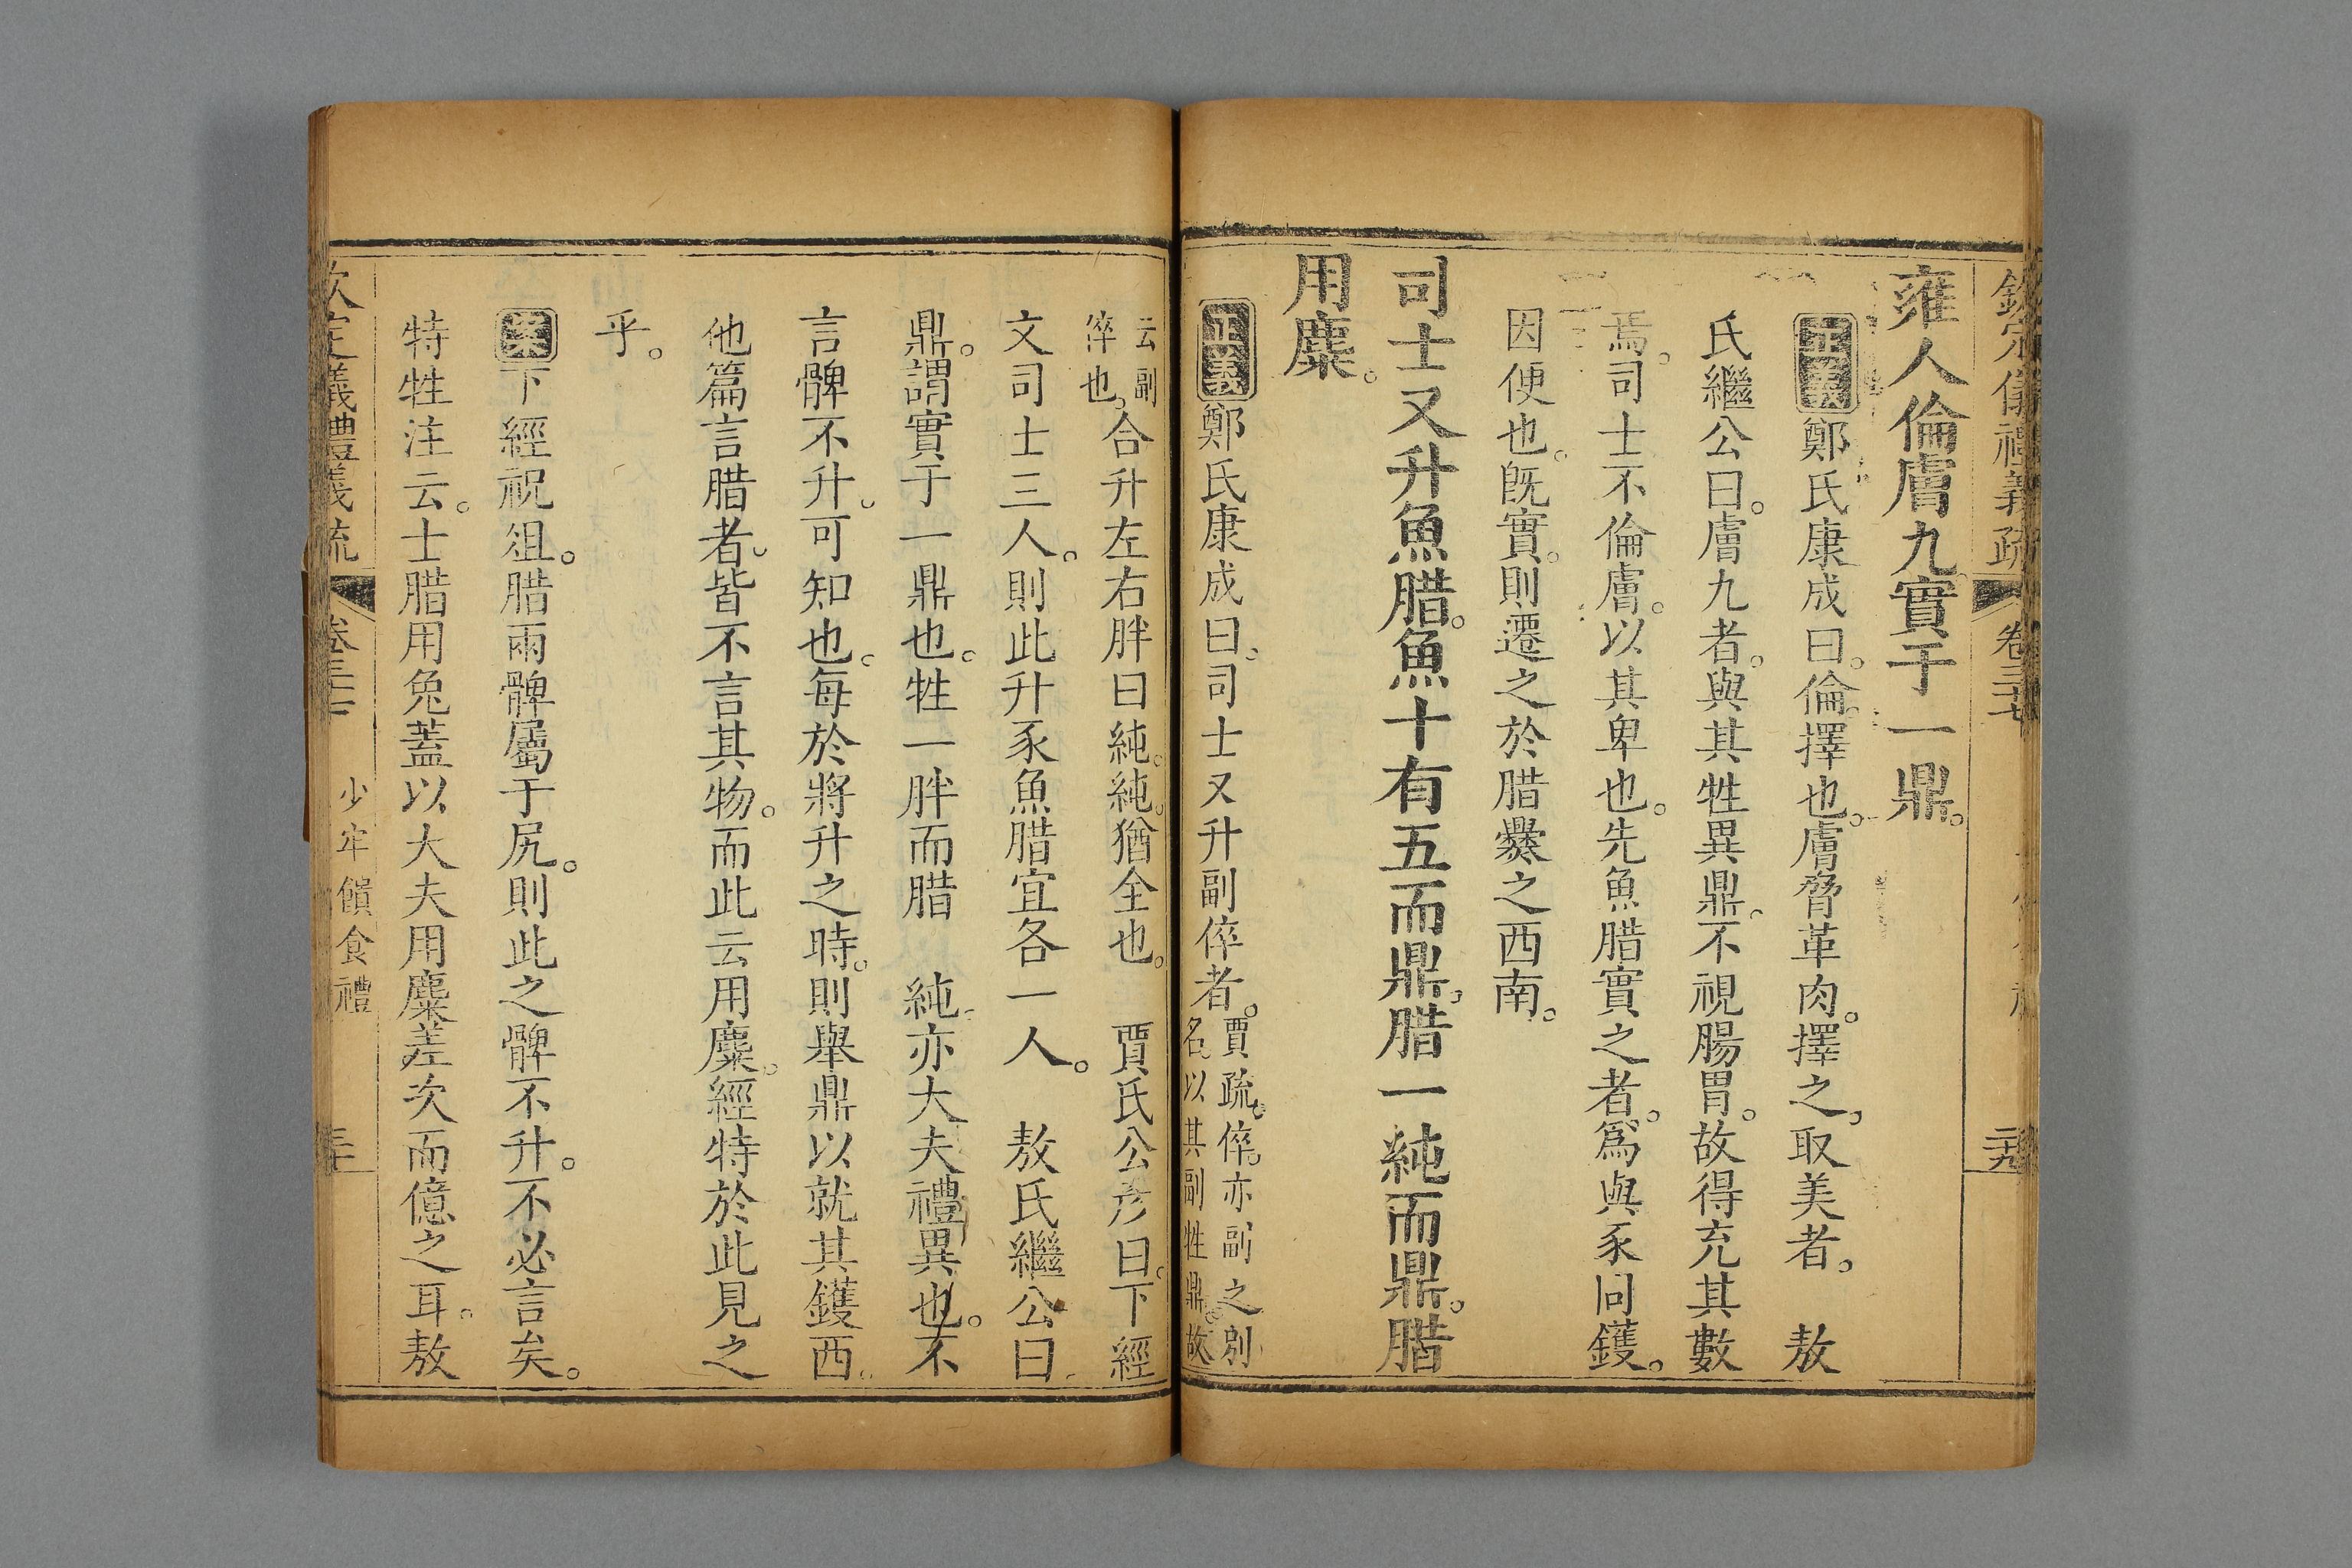 欽定儀禮義疏 卷三十七 二十九
雍人倫膚九實于一鼎。
正義鄭氏康成曰。倫擇也。膚脅革肉。擇之。取美者。 敖
氏繼公曰。膚九者。與其牲異鼎。不視腸胃。故得充其數
焉。司士不倫膚。以其卑也。先魚腊實之者。爲與豕同鑊。
因便也。旣實。則遷之於腊爨之西南。
司士又升魚腊。魚十有五而鼎。腊一純而鼎。腊
用麋。
正義鄭氏康成曰。司士又升副倅者。賈疏。倅。亦副之別
名。以其副牲鼎。故
云副
倅也。合升左右胖曰純。純。猶全也。 賈氏公彥曰。下經
文司士三人。則此升豕魚腊宜各一人。 敖氏繼公曰。
鼎。謂實于一鼎也。牲一胖而腊 純。亦大夫禮異也。不
言髀不升。可知也。每於將升之時。則舉鼎以就其鑊西。
他篇言腊者。皆不言其物。而此云用麋。經特於此見之
乎。
案下經祝俎。腊兩髀屬于尻。則此之髀不升。不必言矣。
特牲注云。士腊用兔蓋以大夫用麋差次而億之耳。敖
欽定儀禮義疏 卷三十七 少牢饋食禮 三十